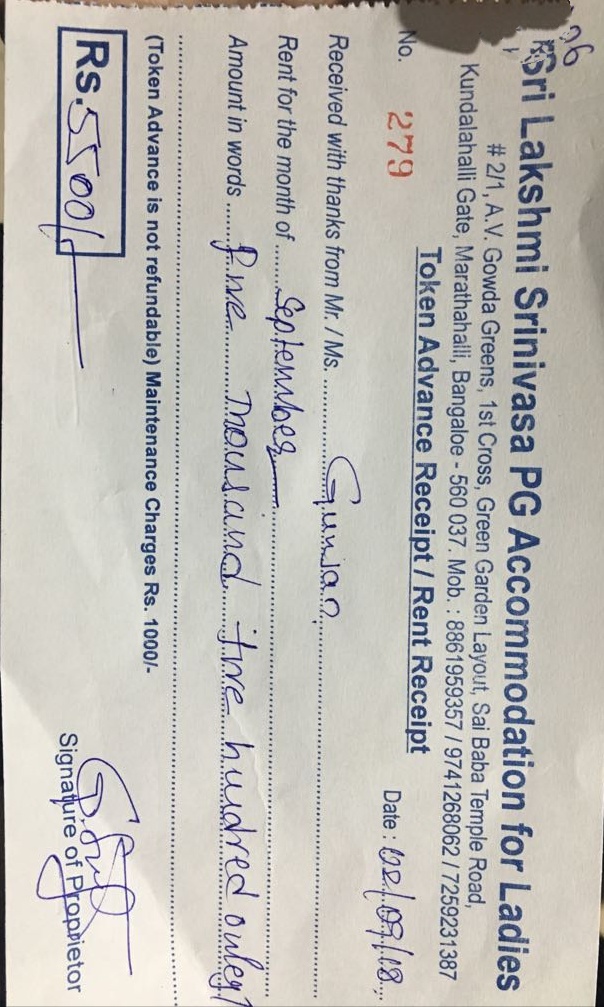 Sri Lakshmi Srinivasa PG Accommodation for Ladies
# 2/1, A.V. Gowda Greens, 1st Cross, Green Garden Layout, Sai Baba Temple Road,
Kundalahalli Gate, Marathahalli, Bangaloe - 560 037. Mob. : 8861959357 / 9741268062 / 7259231387
Token Advance Receipt / Rent Receipt
No. 279 Date : 02/09/18
Received with thanks from Mr. / Ms. Gunjan
Rent for the month of September
Amount in words five Thousand five hundred only/
(Token Advance is not refundable) Maintenance Charges Rs. 1000/-
Rs. 5500/-
Signature of Proprietor